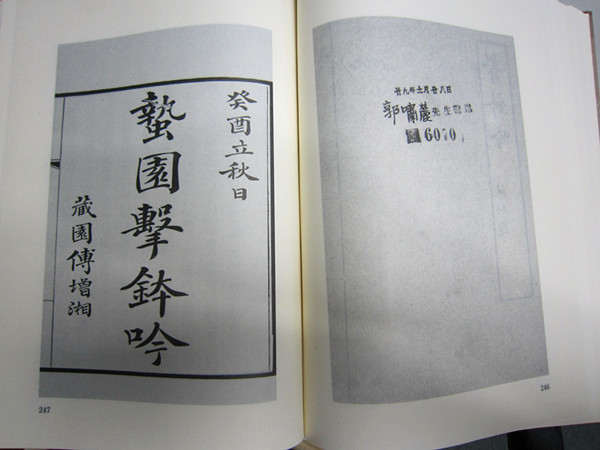 廿九年十一月廿八日
郭嘯麓先生
6070
246
癸酉立秋日
蟄園擊鉢吟
藏園傅增湘
247